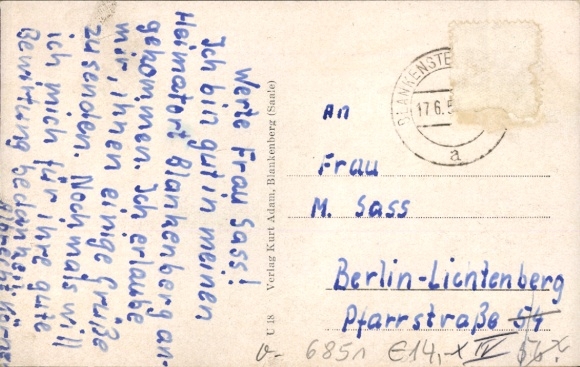 Werte Frau Sass!
Ich bin gut in meinen
Heimatort Blankenberg an-
gekommen. Ich erlaube
mir, ihnen einige Grüße
zusenden. Nochmals will
ich mich für ihre gute
Bewirtung bedanken.
Verlag Kurt Adam, Blankenberg (Saale)
U 18
BLANKENSTE
17.6.5
a
An
Frau
M. Sass
Berlin-Lichtenberg
Pfarrstraße 54
6851 €14,-x IV